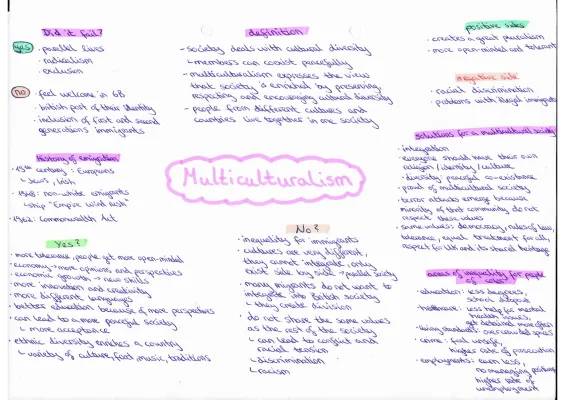 Did it fail?
yes · parallel lives
· radicalism
· exclusion
no · feel welcome in GB
· british part of their identity
· inclusion of first and second
generations immigrants
History of emigration
19th century: Europeans
↳ Jews, Irish
· 1948: non-white emigrants
↳ ship "Empire Wind rush"
· 1962: Commonwealth Act
Yes?
· more tolerance, people get more open-minded
· economy → more opinions and perspectives
· economic growth → new skills
· more innovation and creativity
· more different languages
· better education because of more perspectives
· can lead to a more peaceful society
↳ more acceptance
· ethnic diversity enriches a country
↳ variety of culture, food, music, traditions
definition
- society deals with cultural diversity
↳ members can coexist peacefully
- multiculturalism expresses the view
that society is enriched by preserving,
respecting and encouraging cultural diversity
- people from different cultures and
countries live together in one society
Multiculturalism
No?
· inequality for immigrants
· cultures are very different,
they cannot integrate, only
exist side by side → parallel society
· many migrants do not want to
integrate into British society
↳ they create division
· do not share the same values
as the rest of the society
↳ can lead to conflict and
racial tension
↳ discrimination
↳ racism
positive sides
· creates a great pluralism
· more open-minded and tolerant
negative side
· racial discrimination
· problems with illegal immigrants
solutions for a multicultural society
· integration
· everyone should have their own
religion / identity / culture
· diversity peaceful co-existence
· proud of multicultural society
· terror attacks emerge because
minority of that community do not
respect these values
· same values: democracy, rules of law,
tolerance, equal treatment for all,
respect for all and its shared heritage
areas of inequality for people
of color
· education: less teachers,
school dropout
· healthcare: less help for mental
health issues,
get detained more often
· living standard: overcrowded spaces
· crime: feel unsafe,
higher rate of prosecution
· employments: earn less,
no managing positions
higher rate of
unemployment